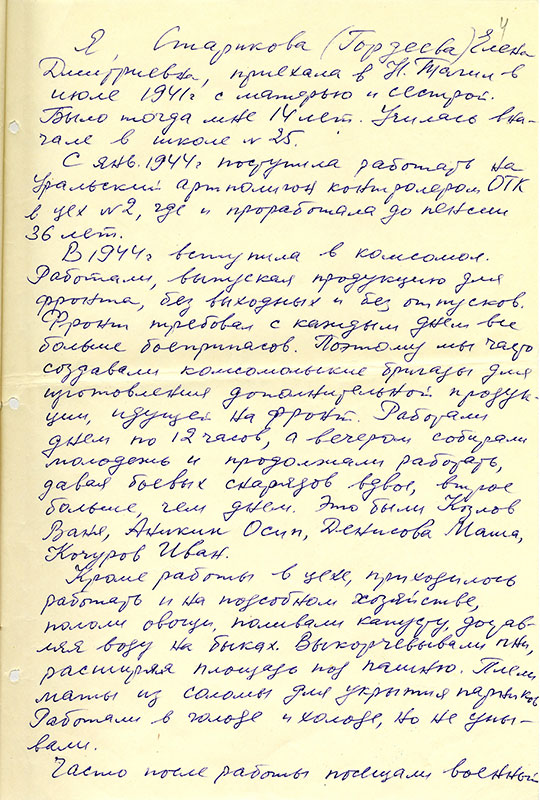 4
Я, Старикова (Гордеева) Елена
Дмитриевна, приехала в Н. Тагил в
июле 1941г с матерью и сестрой.
Было тогда мне 14 лет. Училась вна-
чале в школе № 25.
С янв. 1944г поступила работать на
Уральский артполигон контролером ОТК
в цех №2, где и проработала до пенсии
36 лет.
В 1944г вступила в комсомол.
Работали, выпуская продукцию для
фронта, без выходных и без отпусков.
Фронт требовал с каждым днем все
больше боеприпасов. Поэтому мы часто
создавали комсомольские бригады для
изготовления дополнительной продук-
ции, идущей на фронт. Работали
днем по 12 часов, а вечером собирали
молодежь и продолжали работать,
давая боевых снарядов вдвое, втрое
больше, чем днем. Это были Козлов
Ваня, Аникин Осип, Денисова Маша,
Кочуров Иван.
Кроме работы в цехе, приходилось
работать и на подсобном хозяйстве,
пололи овощи, поливали капусту, достав-
ляя воду на быках. Выкорчевывали пни,
расширяя площадь под пашню. Плели
маты из соломы для укрытия парников
Работали в голоде и холоде, но не уны-
вали.
Часто после работы посещали военный